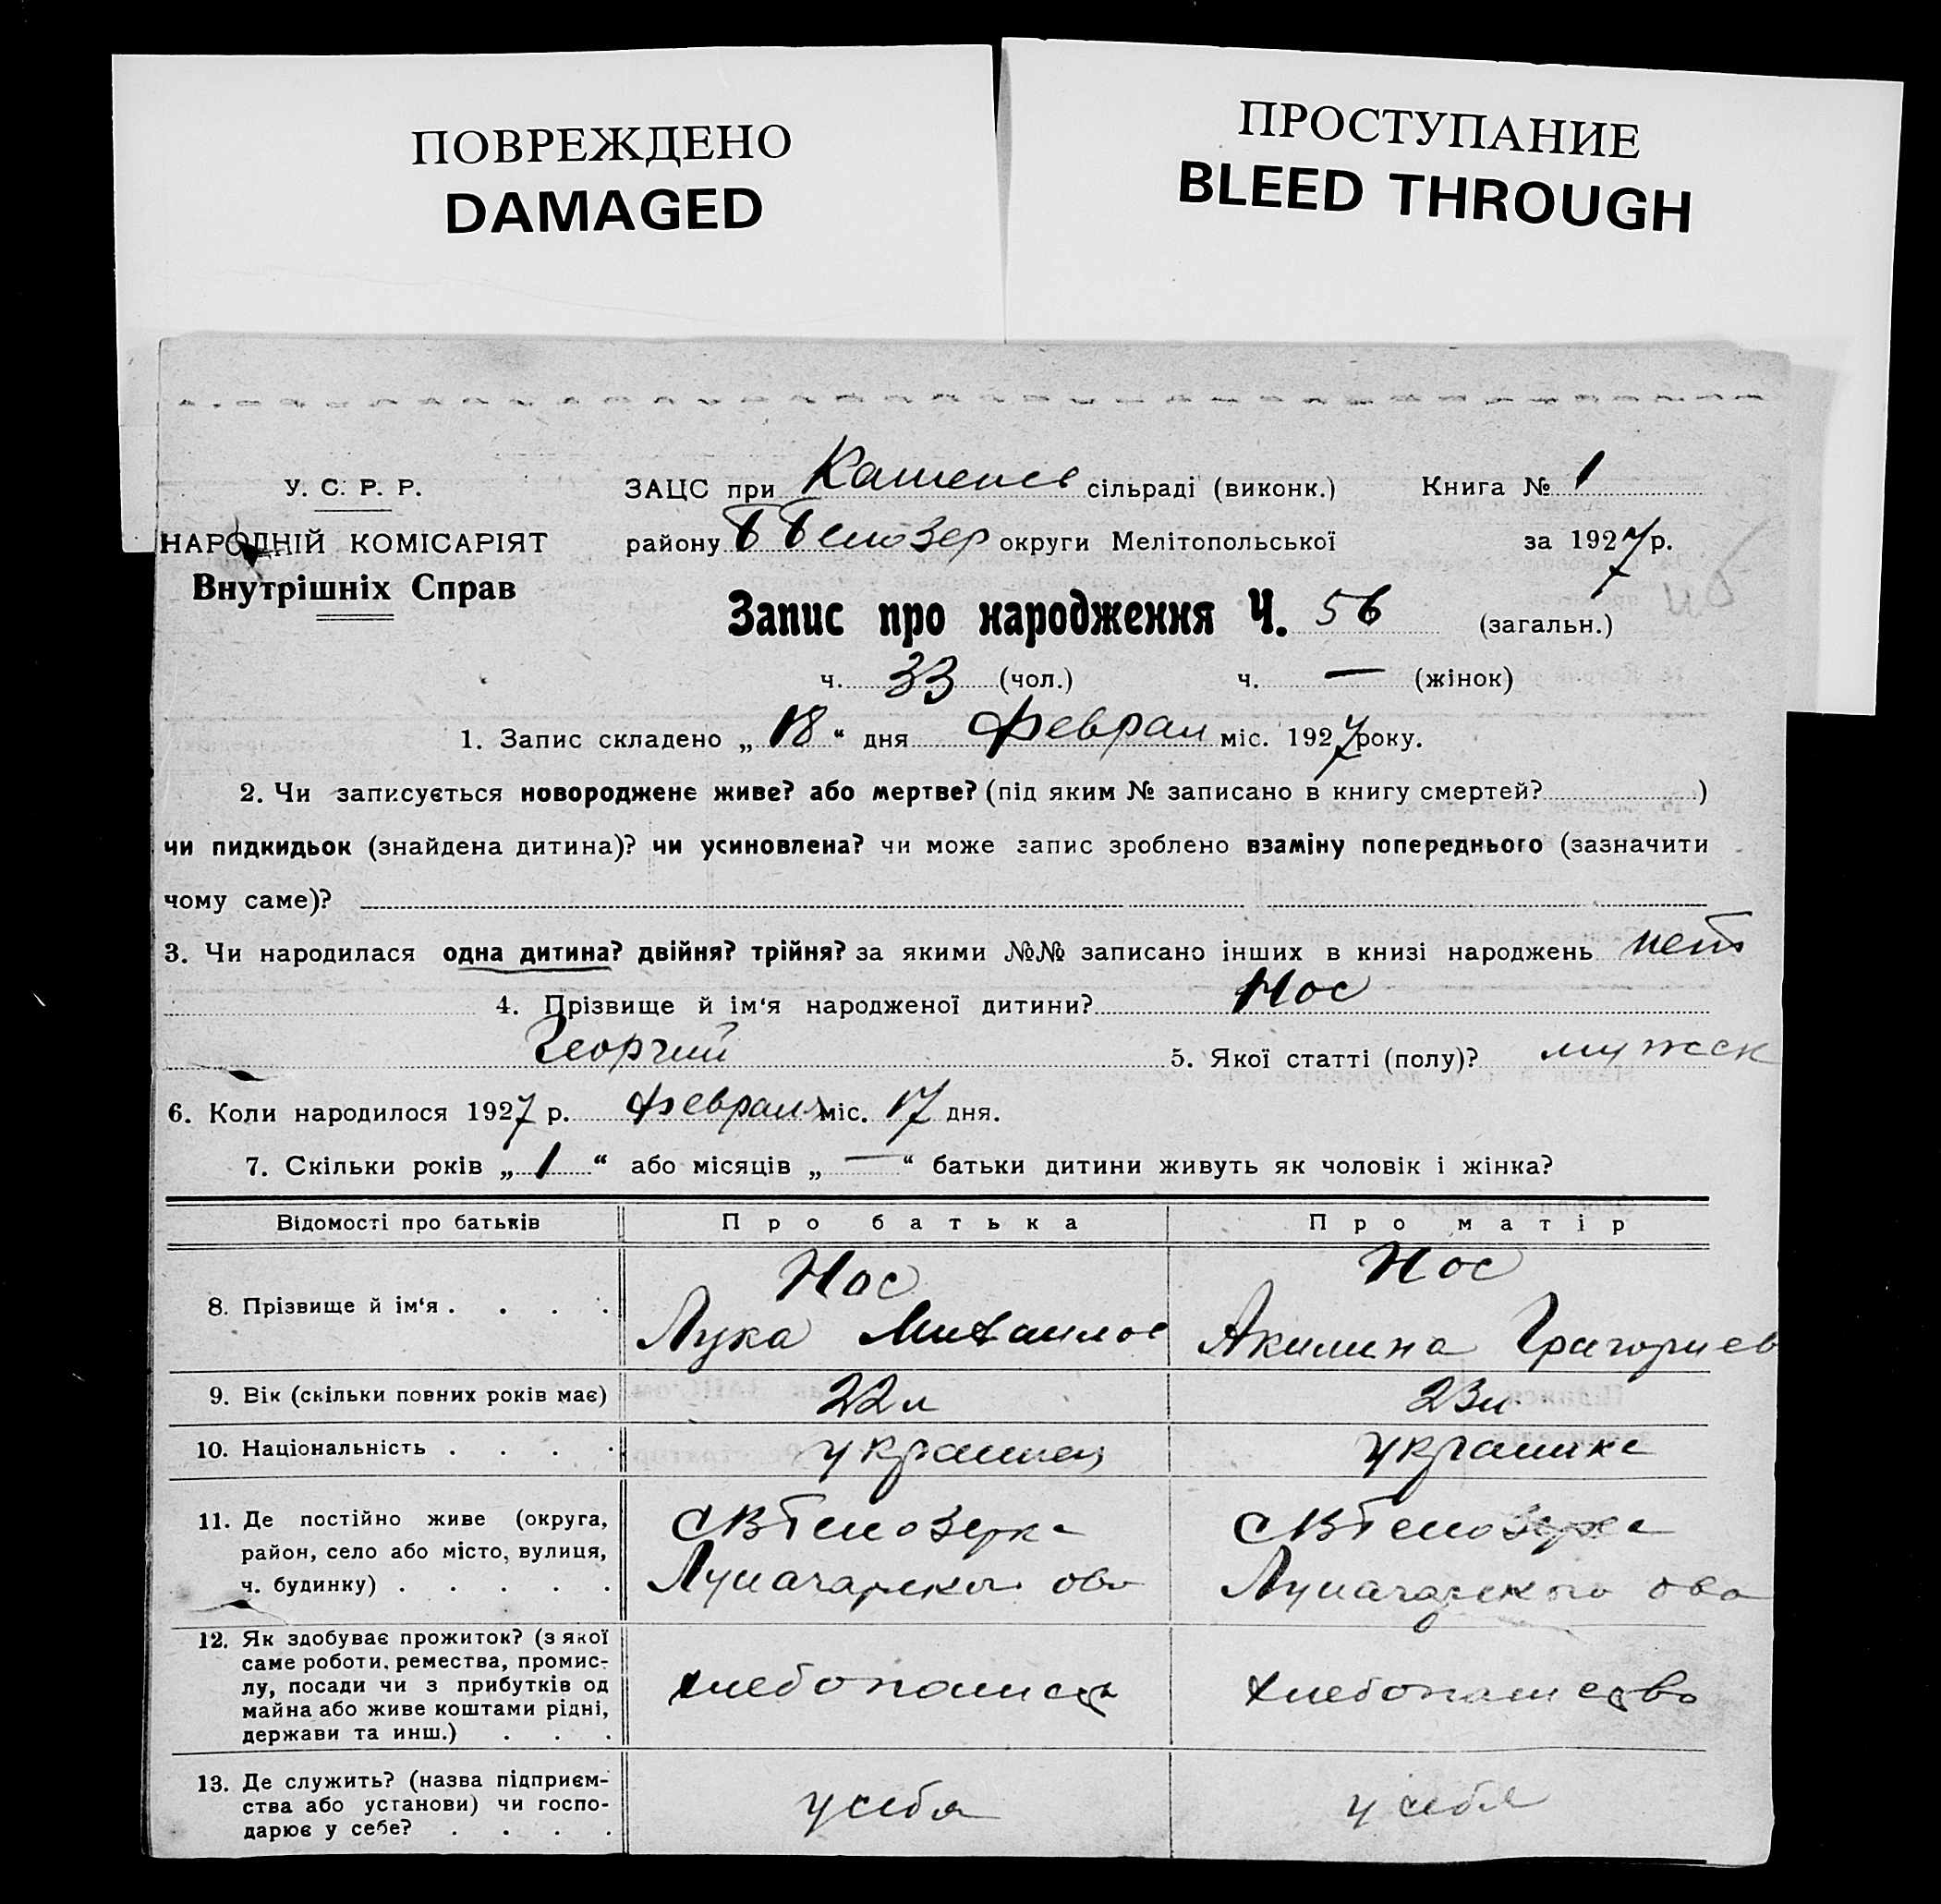 ПОВРЕЖДЕНО
DAMAGED
ПРОСТУПАНИЕ
BLEED THROUGH
У. С. Р. Р.
НАРОДНІЙ КОМІСАРІЯТ
Внутрішніх Справ
ЗАЦС при сільраді (виконк.) Книга № 1
району округи Мелітопольської за 1927 р.
Запис про народження Ч. 56 (загальн.)
ч. 33 (чол.) ч. — (жінок)
1. Запис складено „ 18 “ дня Феврал міс. 1927 року.
2. Чи записується новороджене живе? або мертве? (під яким № записано в книгу смертей? )
чи пидкидьок (знайдена дитина)? чи усиновлена? чи може запис зроблено взаміну попереднього (зазначити
чому саме)?
3. Чи народилася одна дитина? двійня? трійня? за якими №№ записано інших в книзі народжень нет
4. Прізвище й ім‘я народженої дитини? Нос
Георгий 5. Якої статті (полу)? мужск
6. Коли народилося 1927 р. февраля міс. 17 дня.
7. Скільки років „ 1 “ або місяців „ — “ батьки дитини живуть як чоловік і жінка?
Відомості про батьків Про батька Про матір
8. Прізвище й ім‘я . . . . Нос Нос
Лука Михаилов Акилина Григориев
9. Вік (скільки повних років має) 22 л 23 л
10. Національність . . . . украинец украинка
11. Де постійно живе (округа,
район, село або місто, вулиця,
ч. будинку) . . . . .
12. Як здобуває прожиток? (з якої
саме роботи, ремества, промис-
лу, посади чи з прибутків од
майна або живе коштами рідні,
держави та инш.) . . .
хлебопашество
13. Де служить? (назва підприєм-
ства або установи) чи госпо-
дарює у себе? . . . .
у себя у себя